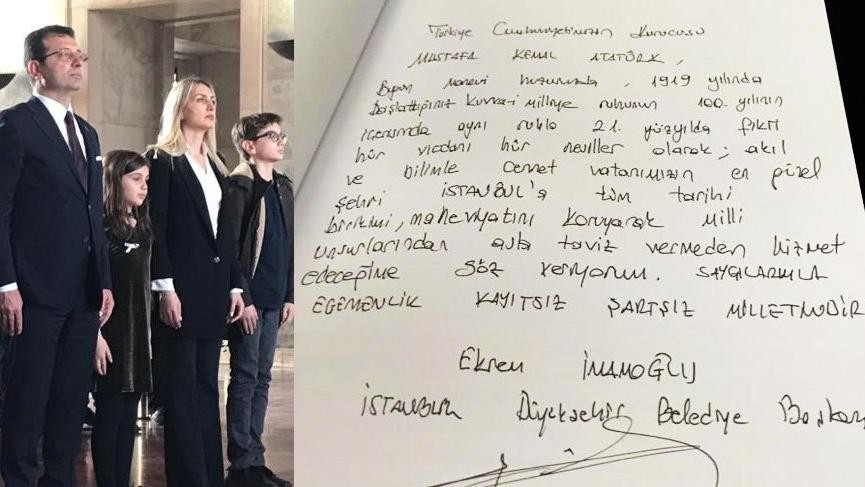 Türkiye Cumhuriyetimizin Kurucusu
MUSTAFA KEMAL ATATÜRK,
Bugün manevi huzurunuzda, 1919 yılında
başlattığınız Kuvva-i Milliye ruhunun 100. yılının
içerisinde aynı ruhla 21. yüzyılda fikri
hür vicdanı hür nesiller olarak; akıl
ve bilimle cennet vatanımızın en güzel
şehri İSTANBUL'a tüm tarihi
birikimi, maneviyatını koruyarak milli
unsurlarından asla taviz vermeden hizmet
edeceğime söz veriyorum. SAYGILARIMLA
EGEMENLİK KAYITSIZ ŞARTSIZ MİLLETİNDİR
Ekrem İMAMOĞLU
İSTANBUL Büyükşehir Belediye Başkanı